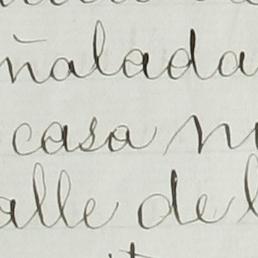 ñalada
casa n
alle de l